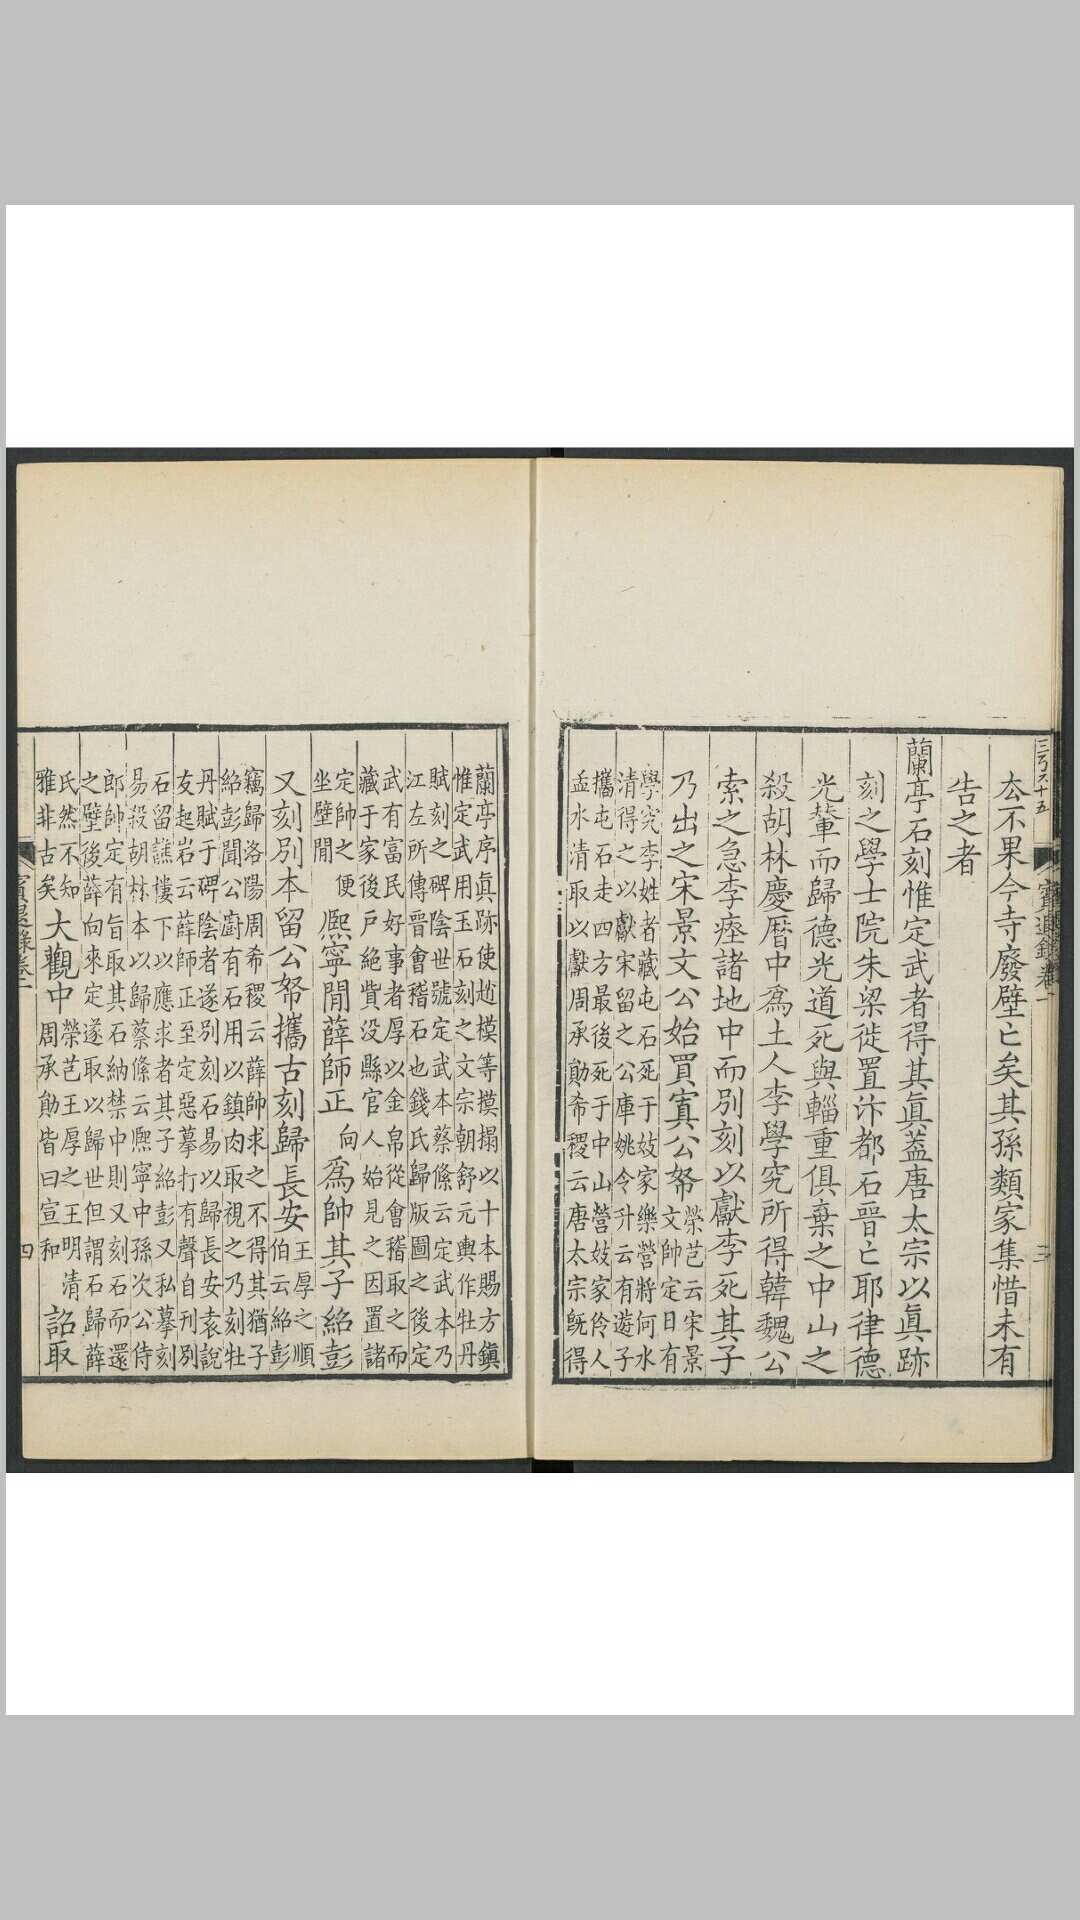 三百八十五
賓退錄卷一
三
厺不果今寺廢壁亡矣其孫類家集惜未有
告之者
蘭亭石刻惟定武者得其眞蓋唐太宗以眞跡
刻之學士院朱梁徙置汴都石晉亡耶律德
光輦而歸德光道死與輜重俱棄之中山之
殺胡林慶曆中爲土人李學究所得韓魏公
索之急李瘞諸地中而別刻以獻李死其子
乃出之宋景文公始買寘公帑
榮芑云宋景
文帥定日有
學究李姓者藏屯石死于妓家樂營將何水
清得之以獻宋留之公庫姚令升云有遊子
攜屯石走四方最後死于中山營妓家伶人
孟水清取以獻周承勛希稷云唐太宗旣得
蘭亭序眞跡使趙模等摸搨以十本賜方鎮
惟定武用玉石刻之文宗朝舒元輿作牡丹
賦刻之碑陰世號定武本蔡絛云定武本乃
江左所傳晉會稽石也錢氏歸版圖之後定
武有富民好事者厚以金帛從會稽取之而
藏于家後戶絕貲没縣官人始見之因置諸
定帥之便
坐壁閒
熙寧閒薛師正向爲帥其子紹彭
又刻別本留公帑攜古刻歸長安
王厚之順
伯云紹彭
竊歸洛陽周希稷云薛帥求之不得其猶子
紹彭聞公廚有石用以鎮肉取視之乃刻牡
丹賦于碑陰者遂別刻石易以歸長安袁說
友起岩云薛師正至定惡摹打有聲自刊別
石留譙樓下以應求者其子紹彭又私摹刻
易殺胡林本以歸蔡絛云熙寧中孫次公侍
郎帥定有旨取其石納禁中則又刻石而還
之壁後薛向來定遂取以歸世但謂石歸薛
氏然不知
雅非古矣
大觀中
榮芑王厚之王明清
周承勛皆曰宣和
詔取
賓退錄卷一
四